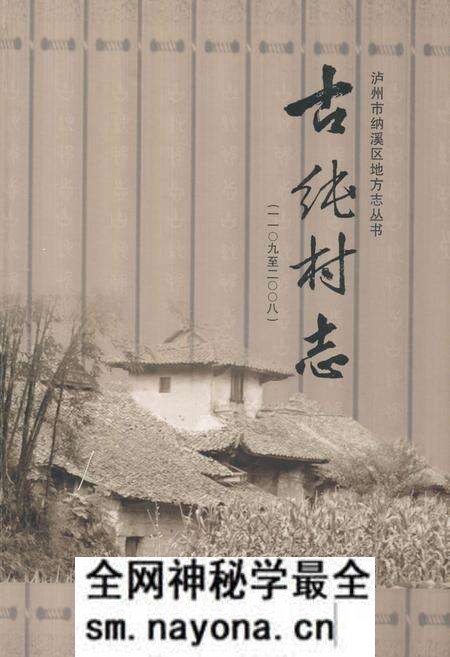 泸州市纳溪区地方志丛书
古纯村志
(一一〇九至二〇〇八)
全网神秘学最全
sm.nayona.cn